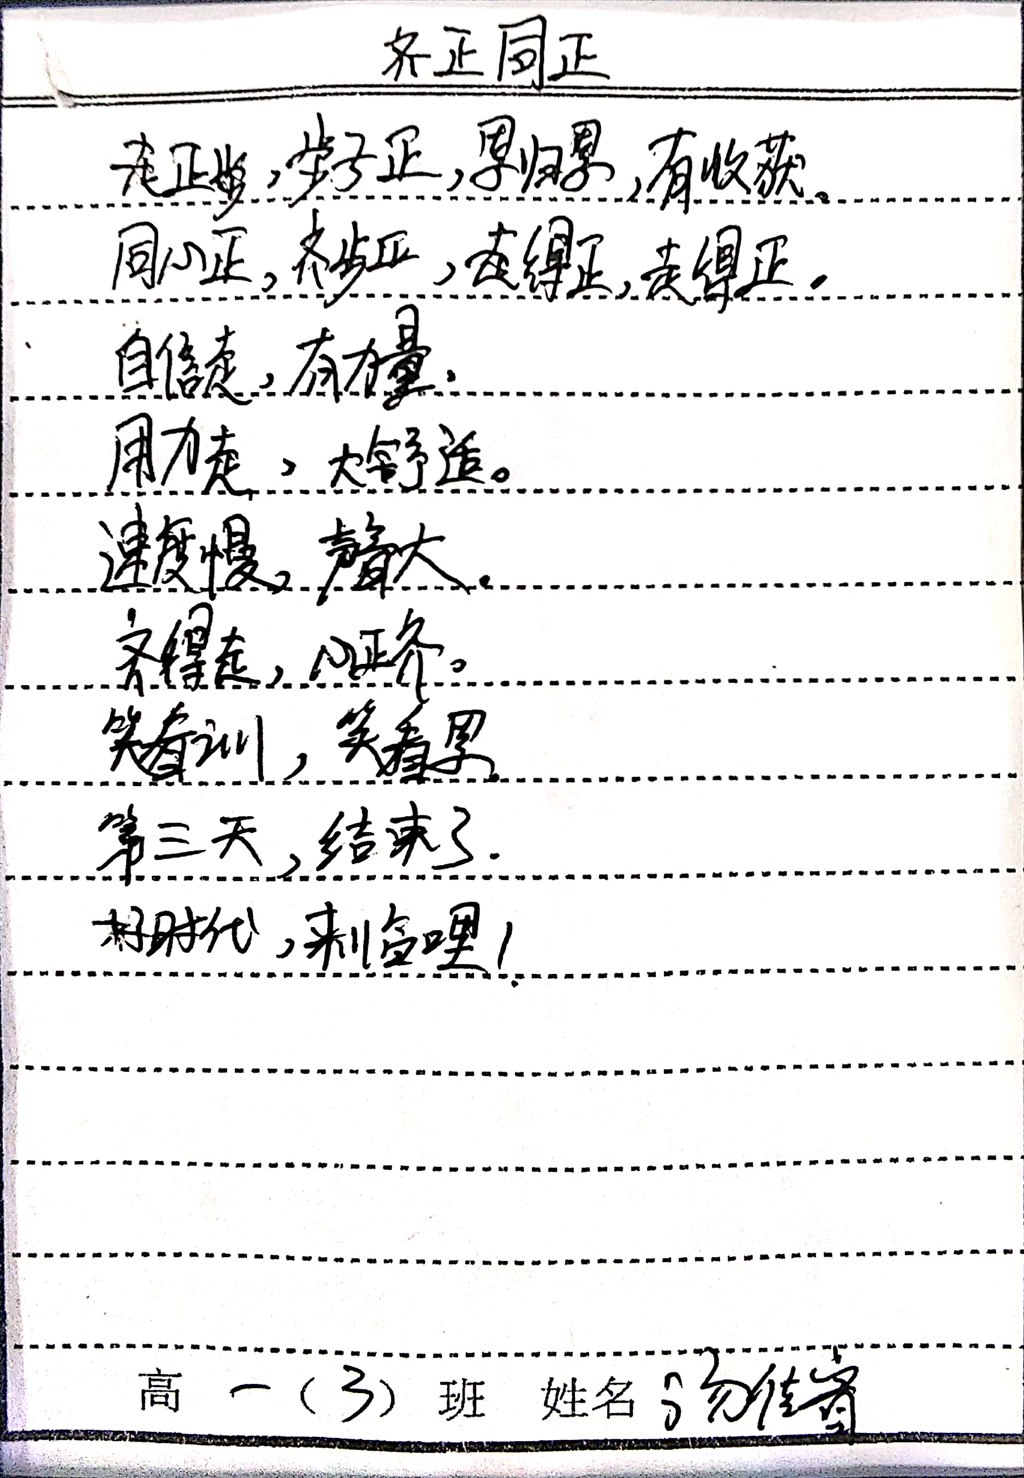 齐正同正
走正步,步子正,累归累,有收获。
同心正,齐步正,走得正,走得正。
自信走,有力量.
用力走,大舒适。
速度慢,声音大.
齐得走,心正齐。
笑看训,笑看累.
第三天,结束了.
好时代,来哩!
高一(3)班 姓名 汤佳睿